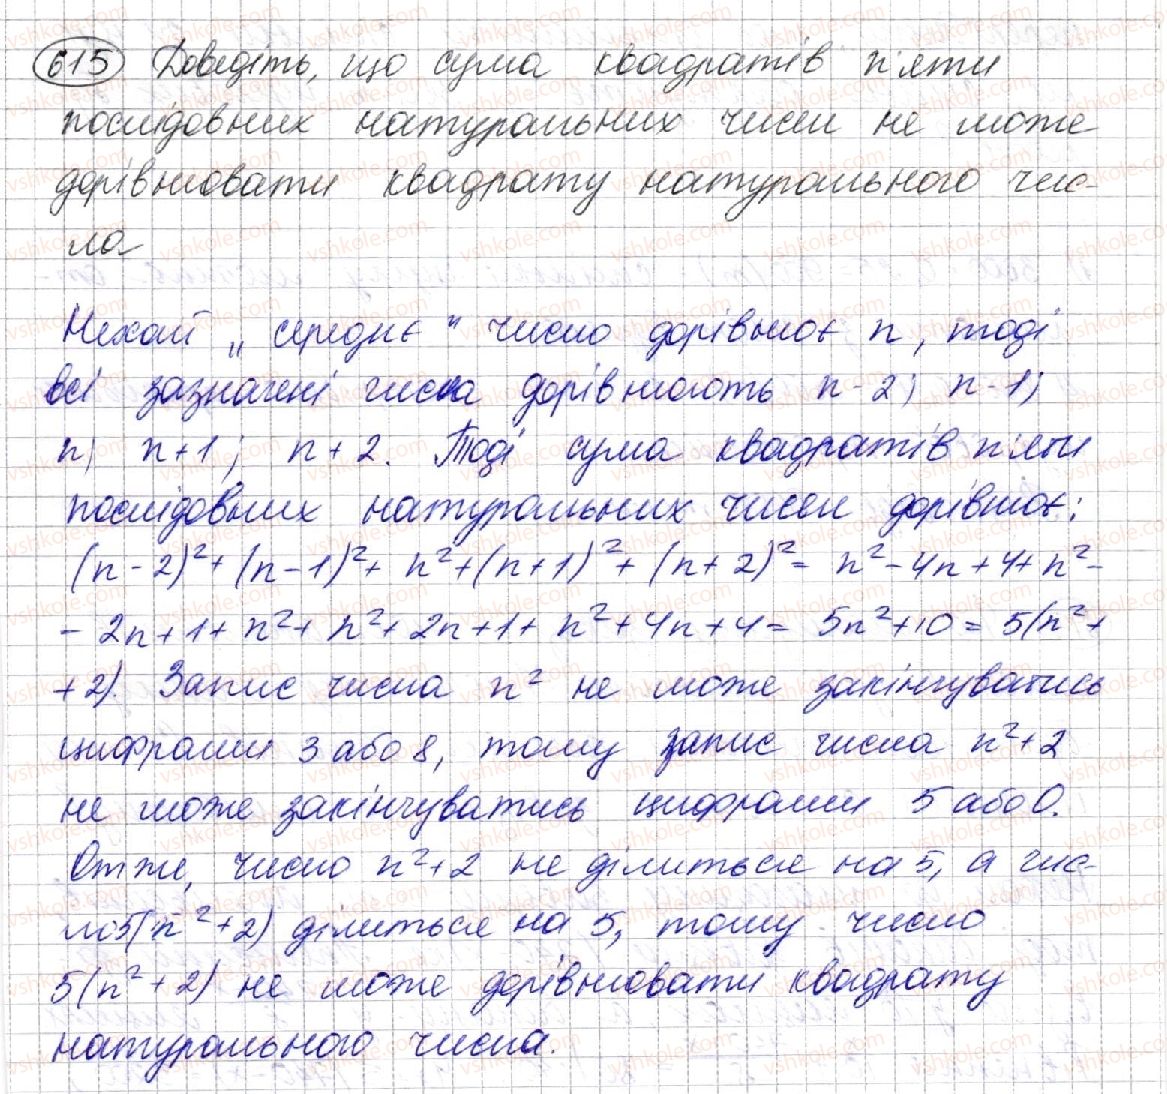 615 Доведіть, що сума квадратів п'яти
послідовних натуральних чисел не може
дорівнювати квадрату натурального чис-
ла
Нехай „середнє" число дорівнює n, тоді
всі зазначені числа дорівнюють n-2; n-1;
n; n+1; n+2. Тоді сума квадратів п'яти
послідовних натуральних чисел дорівнює:
(n-2)²+(n-1)²+n²+(n+1)²+(n+2)²=n²-4n+4+n²-
-2n+1+n²+n²+2n+1+n²+4n+4=5n²+10=5(n²+
+2). Запис числа n² не може закінчуватись
цифрами 3 або 8, тому запис числа n²+2
не може закінчуватись цифрами 5 або 0.
Отже, число n²+2 не ділиться на 5, а чис-
ло 5(n²+2) ділиться на 5, тому число
5(n²+2) не може дорівнювати квадрату
натурального числа.